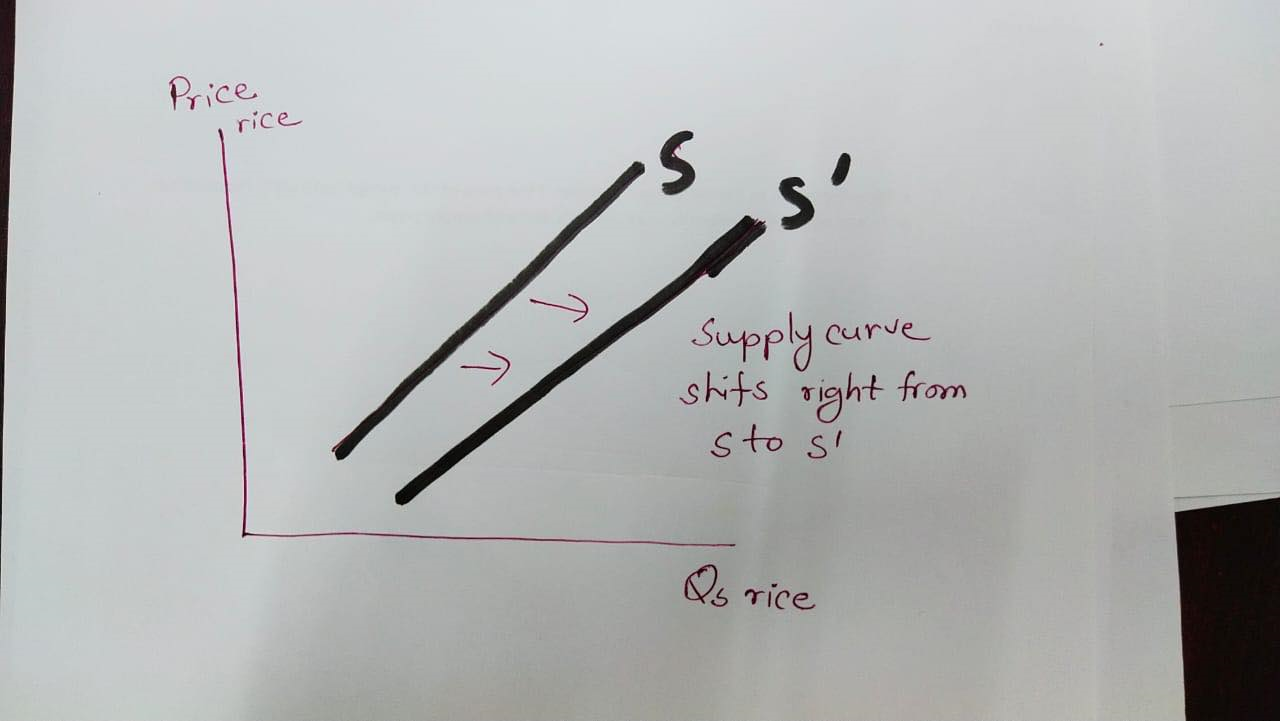 Price
rice
S
S'
Supply curve
shifs right from
S to S'
Qs rice